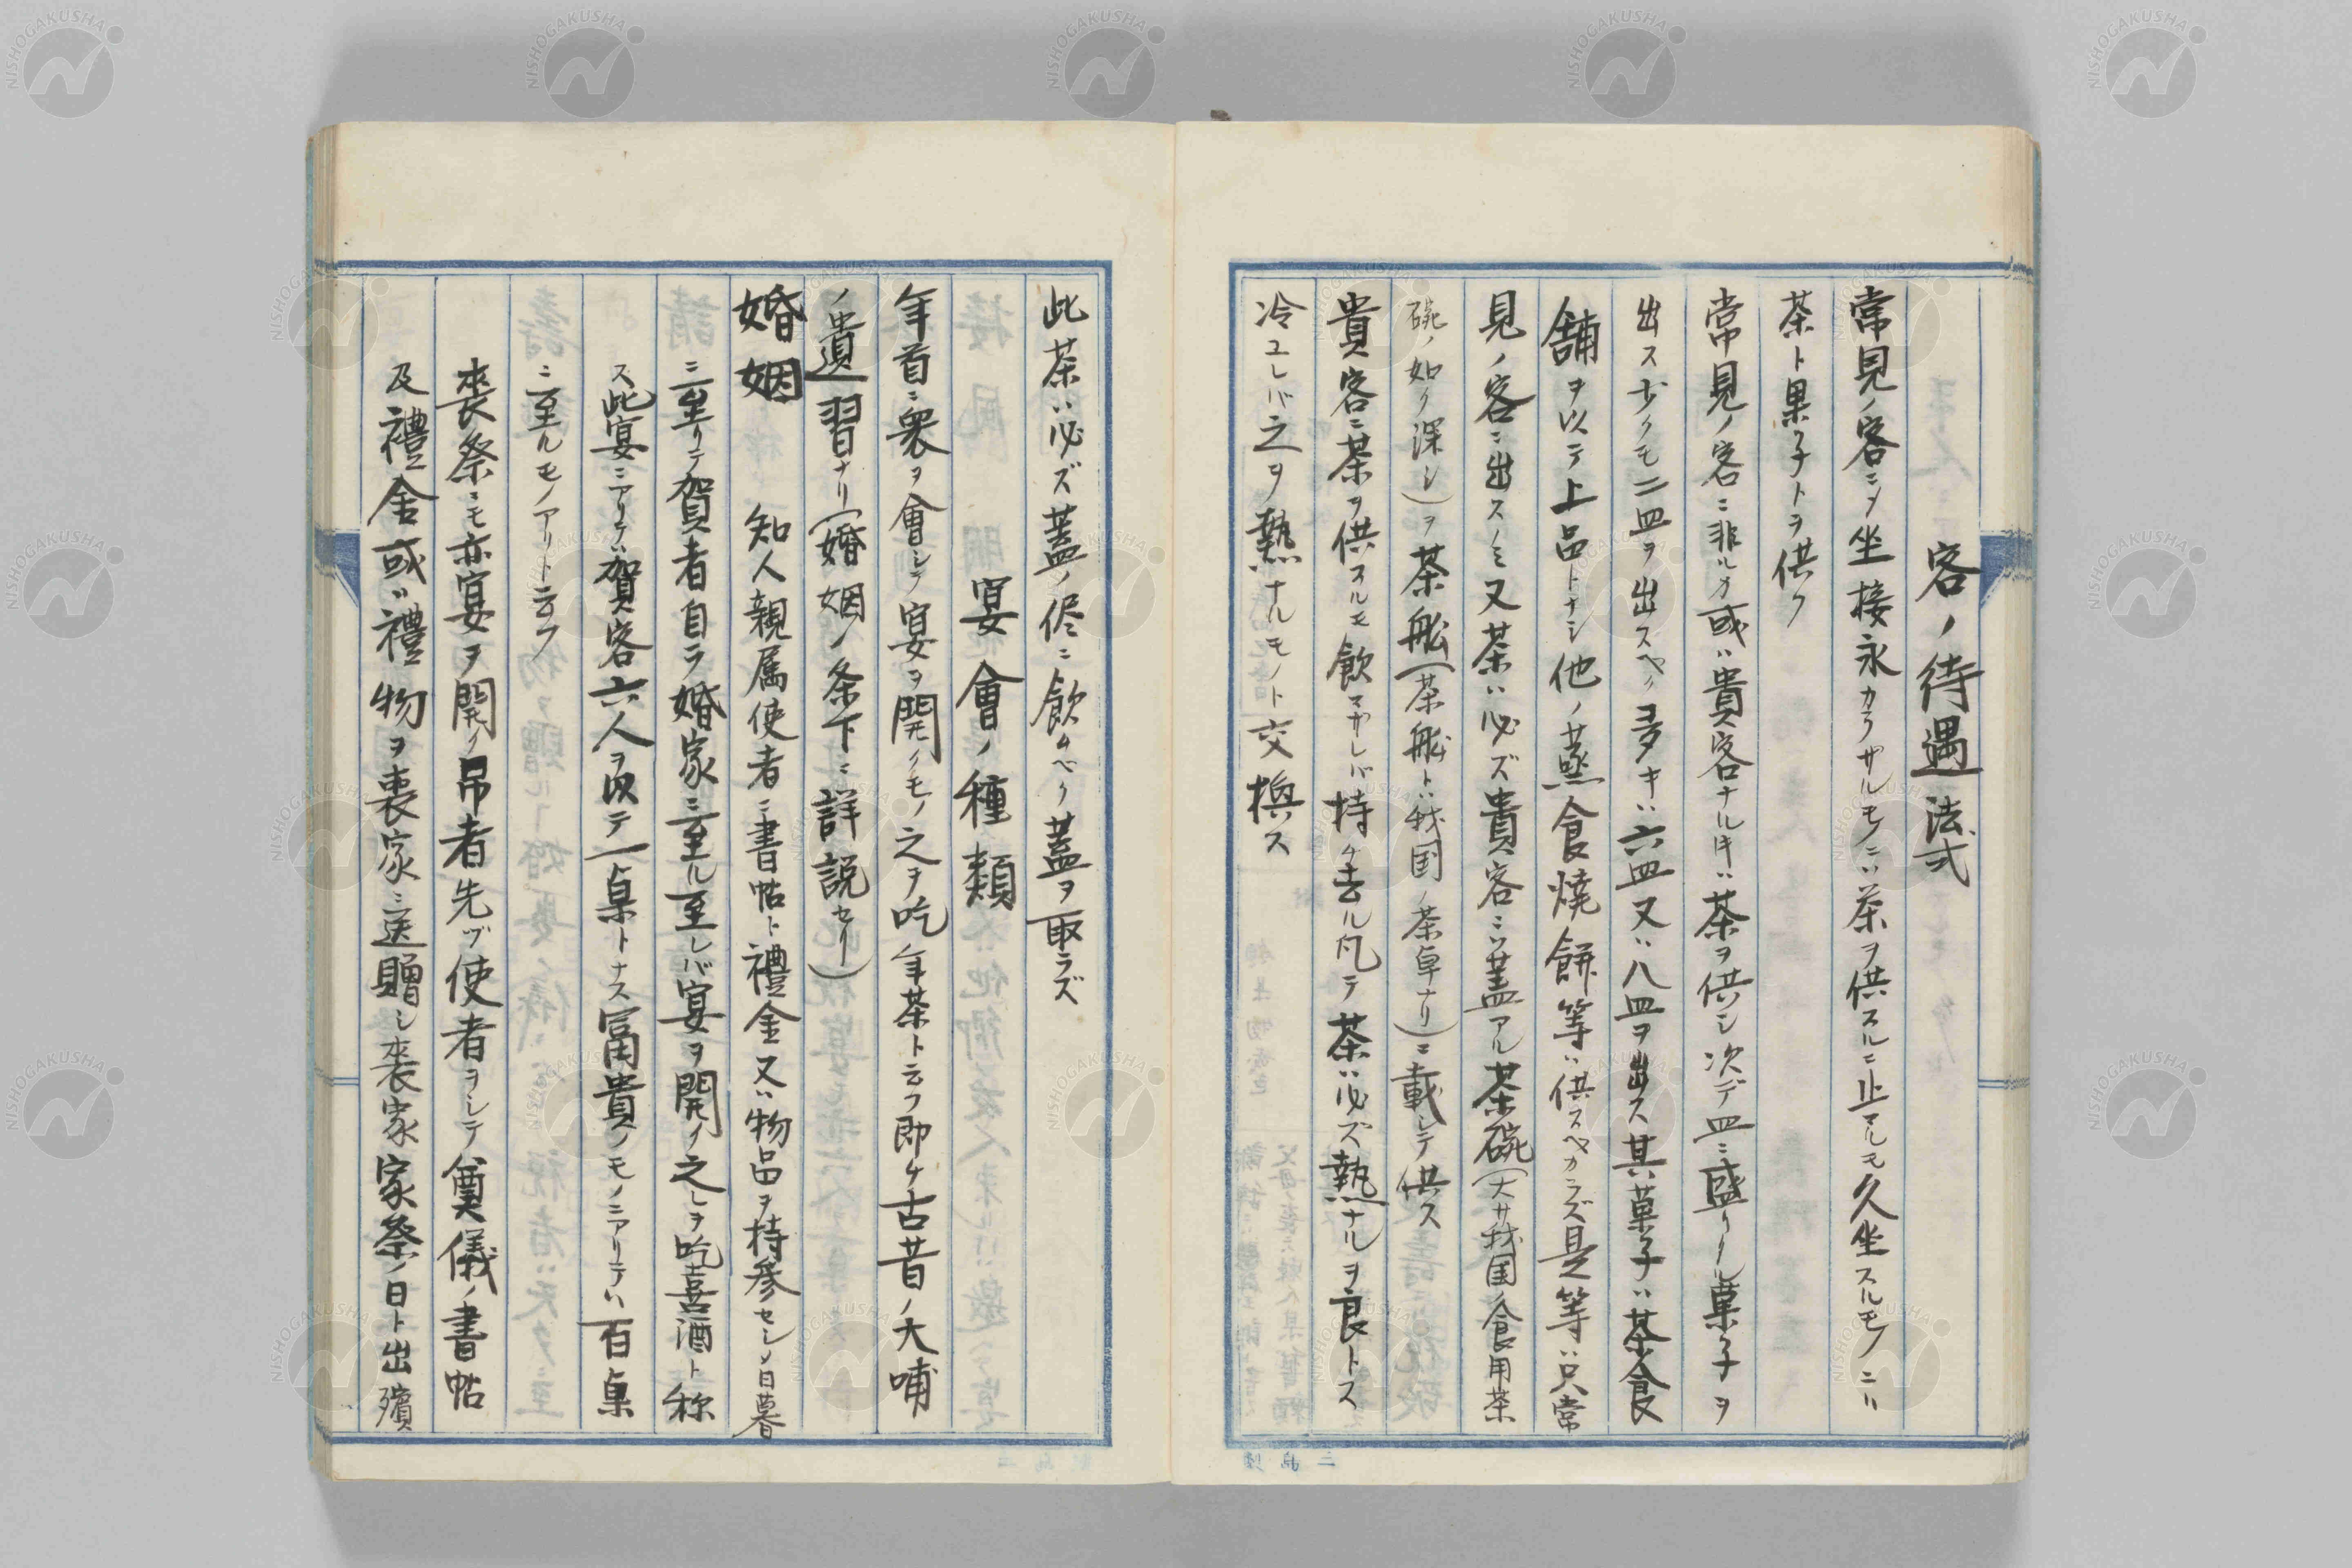 客ノ待遇法式
常見ノ客ニシテ坐接永カラサルモノニハ茶ヲ供スルニ止マルモ久坐スルモノニハ
茶ト果子トヲ供ク
常見ノ客ニ非ルカ或ハ貴客ナルキハ茶ヲ供シ次デ皿ニ盛リタル菓子ヲ
出ス少クモ二皿ヲ出スヘク多キハ六皿又ハ八皿ヲ出ス其菓子ハ茶食
舗ヲ以テ上品トナシ他ノ蒸食焼餅等ハ供スヘカラズ是等ハ只常
見ノ客ニ出スノミ又茶ハ必ズ貴客ニハ蓋アル茶碗(大サ我国ノ食用茶
碗ノ如ク深シ)ヲ茶舩(茶舩トハ我国ノ茶卓ナリ)ニ載シテ供ス
貴客ニ茶ヲ供スルモ飲マサレバ持ケ去ル凡テ茶ハ必ズ熱ナルヲ良トス
冷ユレバ之ヲ熱ナルモノト交換ス
此茶ハ必ズ蓋ノ侭ニ飲ムヘク蓋ヲ取ラズ
宴會ノ種類
年首ニ衆ヲ會シテ宴ヲ開クモノ之ヲ吃年茶ト云フ即ケ古昔ノ大哺
ノ遺習ナリ(婚姻ノ条下ニ詳説セリ)
婚姻 知人親属使者ニ書帖ト禮金又ハ物品ヲ持参セシメ日暮
ニ至リテ賀者自ラ婚家ニ至ル至レバ宴ヲ開ク之レヲ吃喜酒ト称
ス此宴ニアリテハ賀客六人ヲ以テ一桌トナス富貴ノモノニアリテハ百桌
ニ至ルモノアリト云フ
喪祭ニモ亦宴ヲ開ク吊者先ヅ使者ヲシテ奠儀ノ書帖
及禮舍或ハ禮物ヲ喪家ニ送贈シ喪家家祭ノ日ト出殯